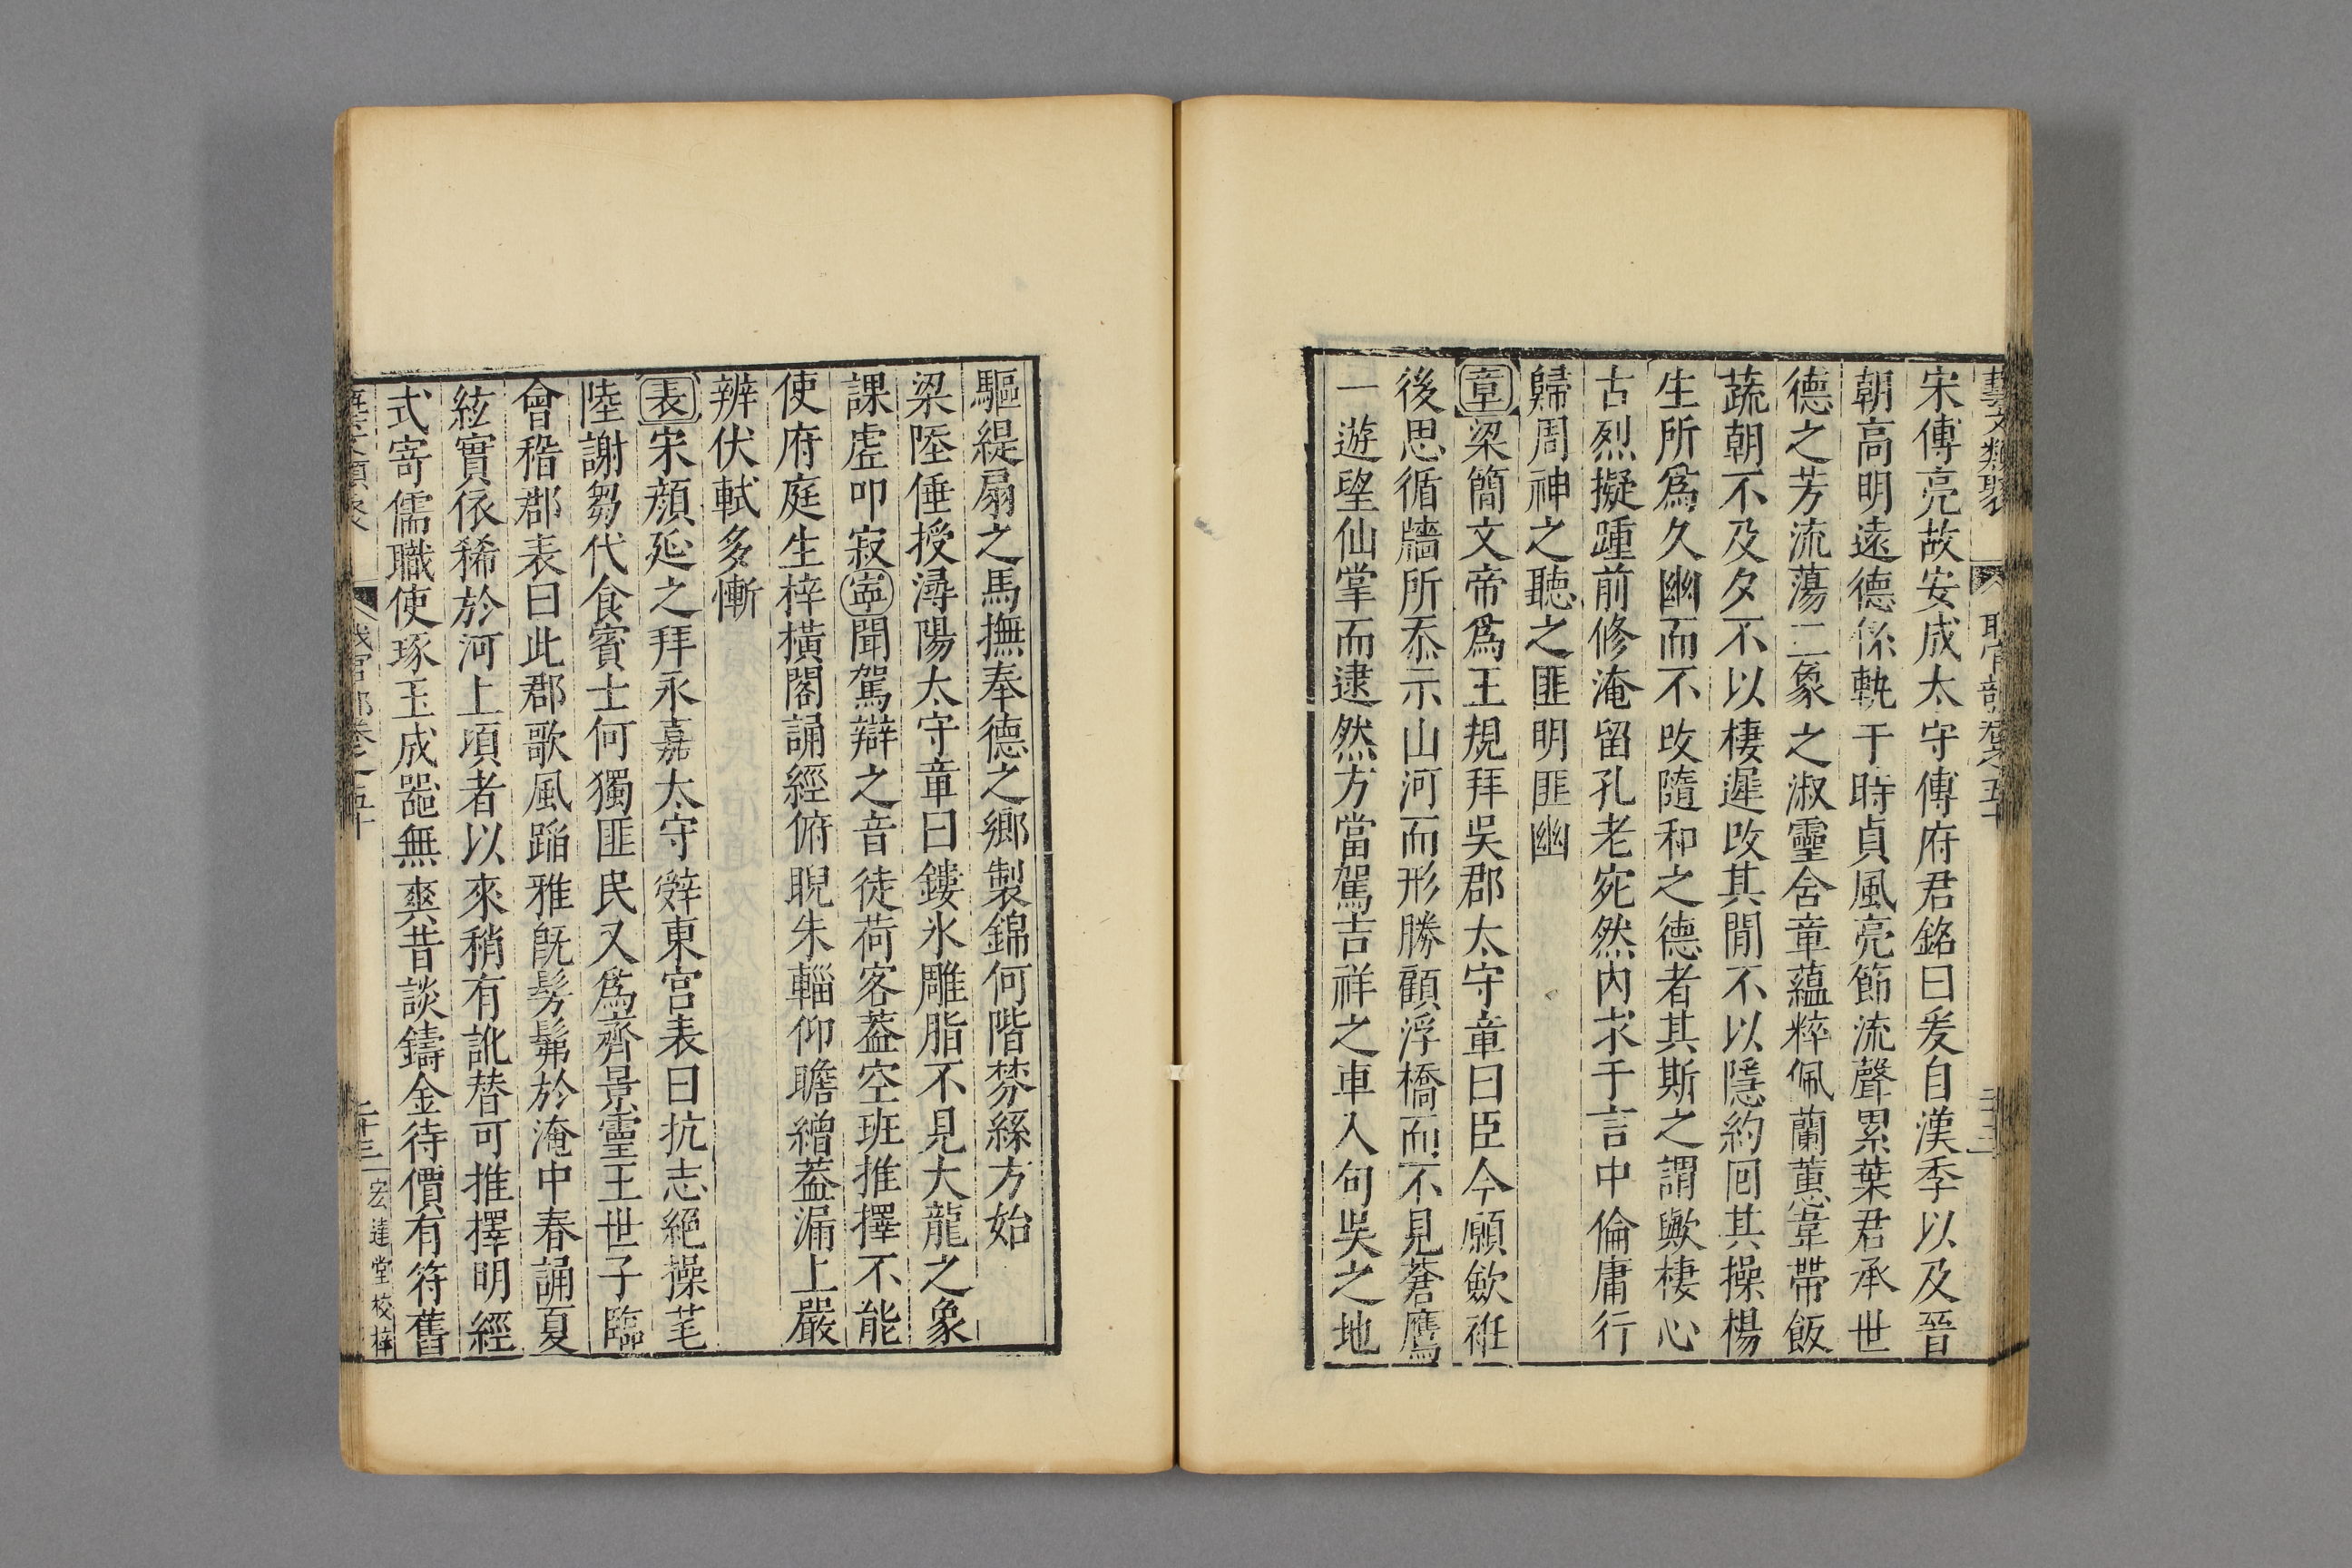 藝文類聚 職官部卷之五十
宋傅亮故安成太守傅府君銘曰爰自漢季以及晉
朝高明遠德係軌于時貞風亮節流聲累葉君承世
德之芳流蕩二象之淑靈含章蘊粹佩蘭蕙韋帶飯
蔬朝不及夕不以棲遲改其閒不以隱約囘其操楊
生所爲久幽而不改隨和之德者其斯之謂歟棲心
古烈擬踵前修淹留孔老宛然內求于言中倫庸行
歸周神之聽之匪明匪幽
章梁簡文帝爲王規拜吳郡太守章曰臣今願歛袵
後思循牆所忝示山河而形勝顧浮橋而不見蒼鷹
一遊望仙掌而逮然方當駕吉祥之車入句吳之地
驅緹扇之馬撫奉德之鄉製錦何階棼絲方始
梁陸倕授潯陽太守章曰鏤氷雕脂不見大龍之象
課虛叩寂寧聞駕辯之音徒荷客葢空班推擇不能
使府庭生梓橫閣誦經俯睨朱轓仰瞻繒葢漏上嚴
辨伏軾多慚
表宋顏延之拜永嘉太守辭東宮表曰抗志絕操芼
陸謝芻代食賓士何獨匪民又爲齊景靈王世子臨
會稽郡表曰此郡歌風蹈雅旣髣髴於淹中春誦夏
絃實依稀於河上頃者以來稍有訛替可推擇明經
式寄儒職使琢玉成噐無爽昔談鑄金待價有符舊
職官部卷之五十 二十三 宏達堂校梓